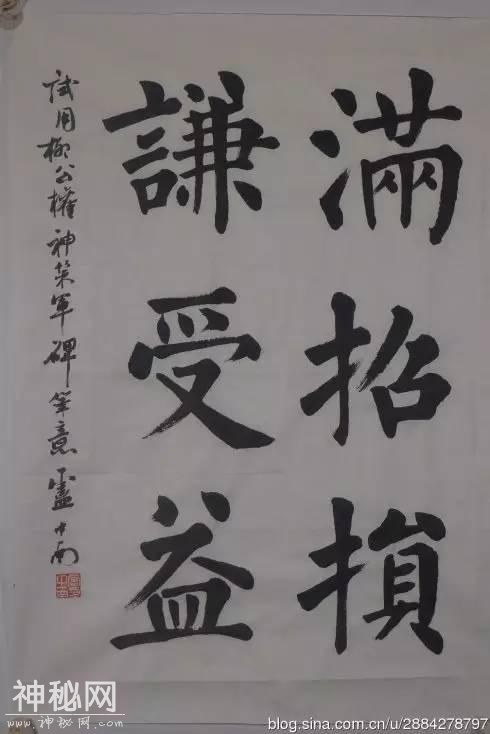 滿招損
謙受益
試用柳公權神策軍碑筆意 盧中南
神秘网
www.神秘网.com
blog.sina.com.cn/u/2884278797